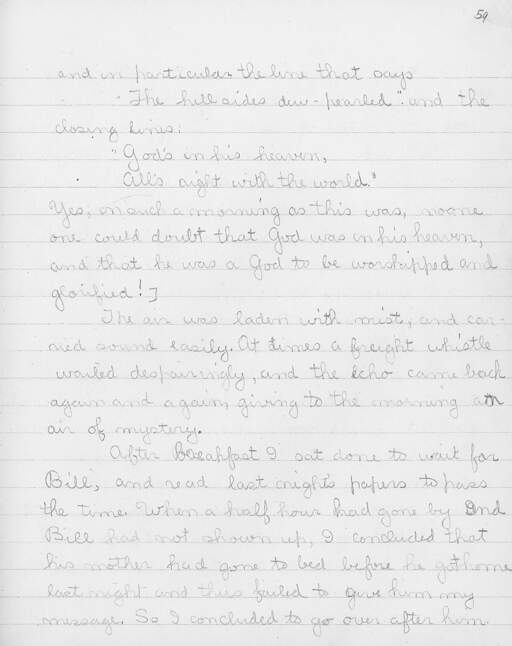 59
and in particular the line that says
"The hillsides dew-pearled" and the
closing lines:
"God's in his heaven,
All's right with the world."
Yes, on such a morning as this was, no one
one could doubt that God was in his heaven,
and that he was a God to be worshipped and
glorified!]
The air was laden with mist, and car-
ried sound easily. At times a freight whistle
wailed despairingly, and the echo came back
again and again, giving to the morning an
air of mystery.
After Breakfast I sat done to wait for
Bill, and read last night's papers to pass
the time. When a half hour had gone by and
Bill had not shown up, I concluded that
his mother had gone to bed before he got home
last night and thus failed to give him my
message. So I concluded to go over after him